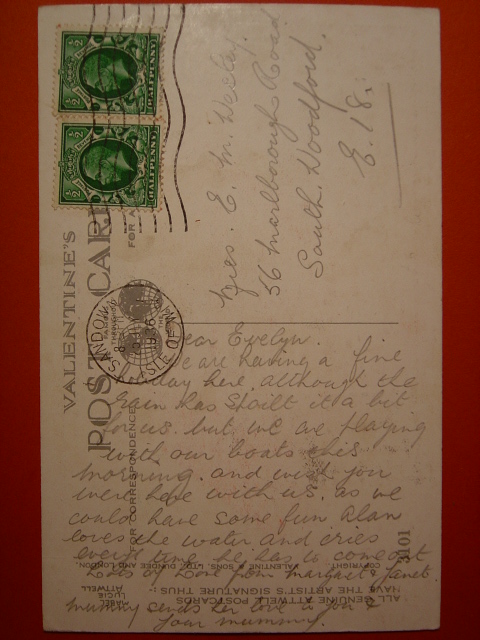 ½ ½
HALFPENNY
½ ½
HALFPENNY
VALENTINE'S
POST CARD
FOR CORRESPONDENCE
FOR A
SANDOWN
1936
ISLE OF W
Mrs. E. M. Wesley.
56 Marlborough Road
South Woodford.
E. 18.
ear Evelyn.
We are having a fine
holiday here. although the
rain has spoilt it a bit
for us. but we are playing
with our boats this
morning. and wish you
were here with us. as we
could have some fun. Alan
loves the water and cries
every time he has to come out
Lots of Love from Margaret & Janet
Mummy sends her love to you &
your mummy.
3101
COPYRIGHT. VALENTINE & SONS, LTD., DUNDEE AND LONDON.
ALL GENUINE ATTWELL POSTCARDS
HAVE THE ARTIST'S SIGNATURE THUS :-
MABEL
LUCIE
ATTWELL